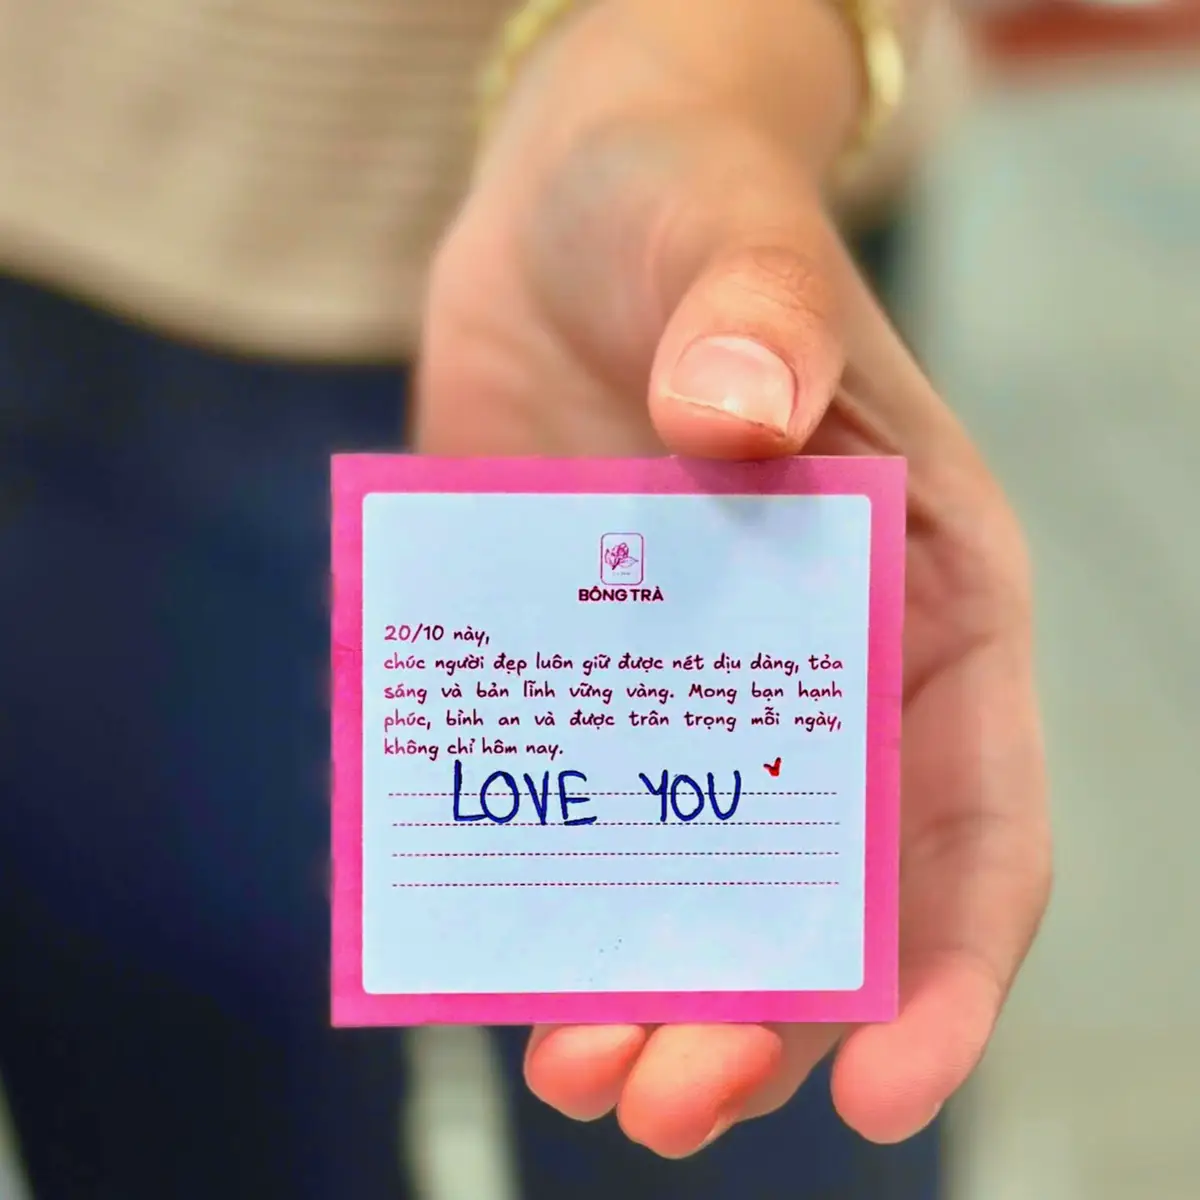 BÔNG TRÀ
20/10 này,
chúc người đẹp luôn giữ được nét dịu dàng, tỏa
sáng và bản lĩnh vững vàng. Mong bạn hạnh
phúc, bình an và được trân trọng mỗi ngày,
không chỉ hôm nay.
LOVE YOU